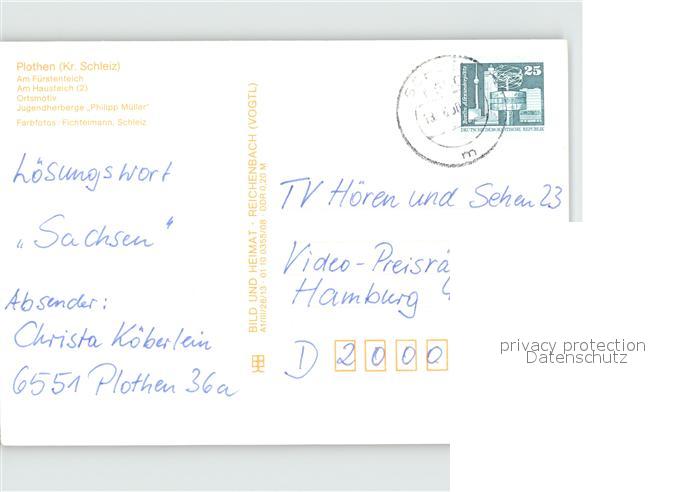 Plothen (Kr. Schleiz)
Am Fürstenteich
Am Hausteich (2)
Ortsmotiv
Jugendherberge „Philipp Müller"
Farbfotos: Fichtelmann, Schleiz
BILD UND HEIMAT · REICHENBACH (VOGTL)
A1/III/26/13 · 01 10 0355/08 · DDR 0,20 M
25
DEUTSCHE DEMOKRATISCHE REPUBLIK
m
Lösungswort
„Sachsen"
Absender:
Christa Köberlein
6551 Plothen 36a
TV Hören und Sehen 23
Video-Preisrä
Hamburg
D 2000
privacy protection
Datenschutz